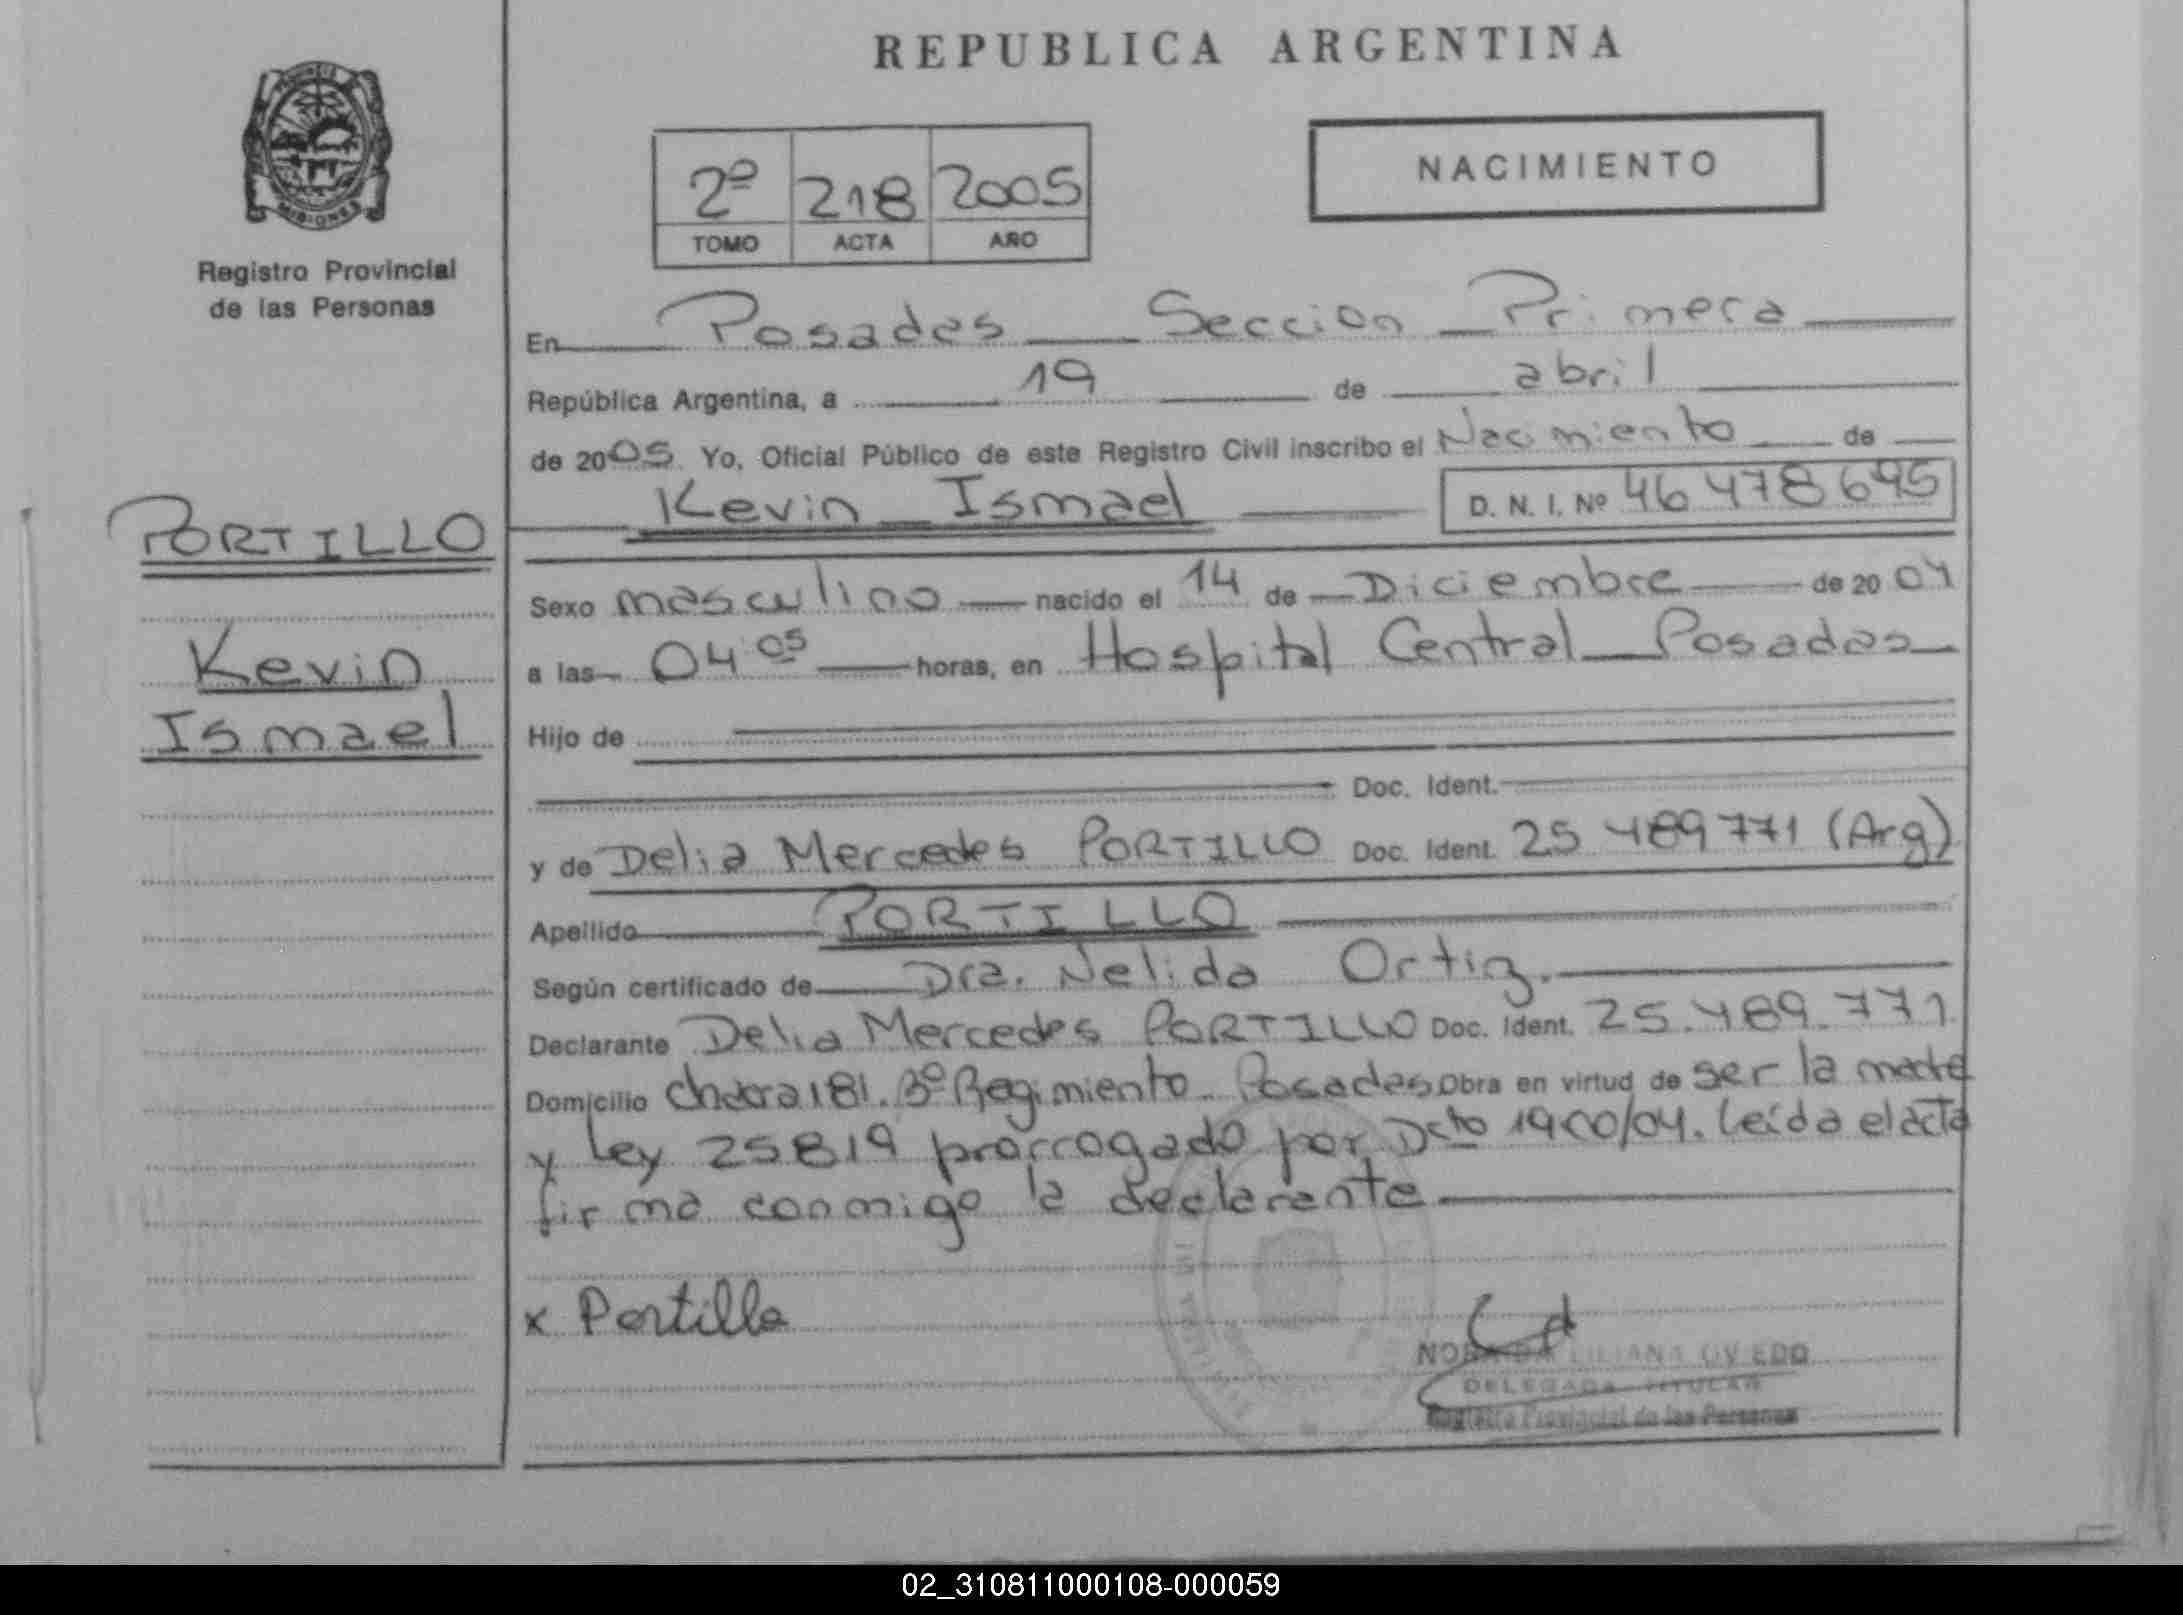 PROVINCIA DE
MISIONES
Registro Provincial
de las Personas
PORTILLO
Kevin
Ismael
REPUBLICA ARGENTINA
2º 218 2005
TOMO ACTA AÑO
NACIMIENTO
En Posadas Seccion Primera
República Argentina, a 19 de abril
de 2005 Yo, Oficial Público de este Registro Civil inscribo el Nacimiento de
Kevin Ismael D. N. I. Nº 46 478 695
Sexo masculino nacido el 14 de Diciembre de 2004
a las 04 05 horas, en Hospital Central Posadas
Hijo de
Doc. Ident.
y de Delia Mercedes PORTILLO Doc. Ident. 25 489 771 (Arg)
Apellido PORTILLO
Según certificado de Dra. Nelida Ortiz.
Declarante Delia Mercedes PORTILLO Doc. Ident. 25.489.771
Domicilio chacra 181. 3º Regimiento Posadas Obra en virtud de ser la madre
y Ley 25819 prorrogado por Dcto 1900/04. Leida el acta
firma conmigo la declarante
x Portillo
LILIANA OVIEDO
DELEGADA TITULAR
Registro Provincial de las Personas
02_310811000108-000059